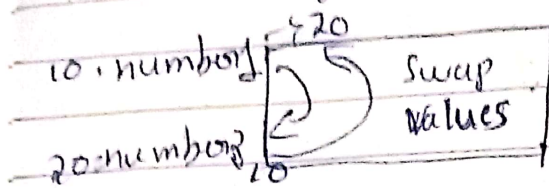 →20
10. number1 swap
values
20. number2 10